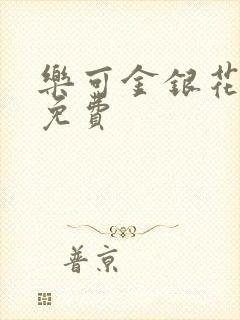 樂可金銀花
免費
普京